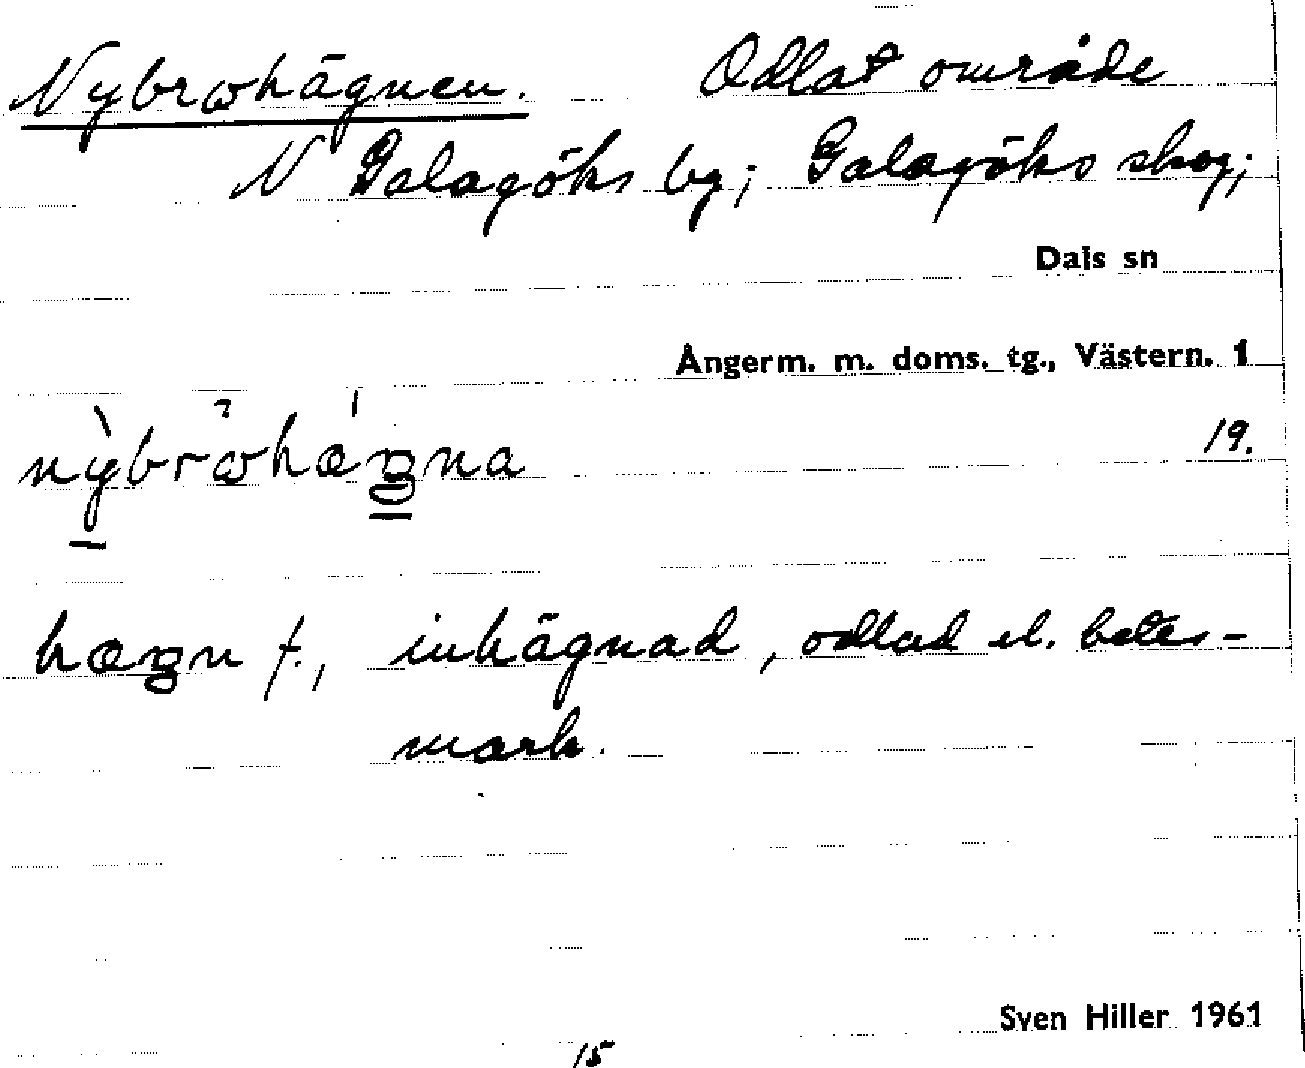 Nybrohägnen. Odlat område
N Galagöks by; Galagöks skog;
Dals sn
Ångerm. m. doms. tg., Västern. 1
19.
nỳbrωhægna
hægn f., inhägnad, odlad el. betes-
mark.
Sven Hiller 1961
15